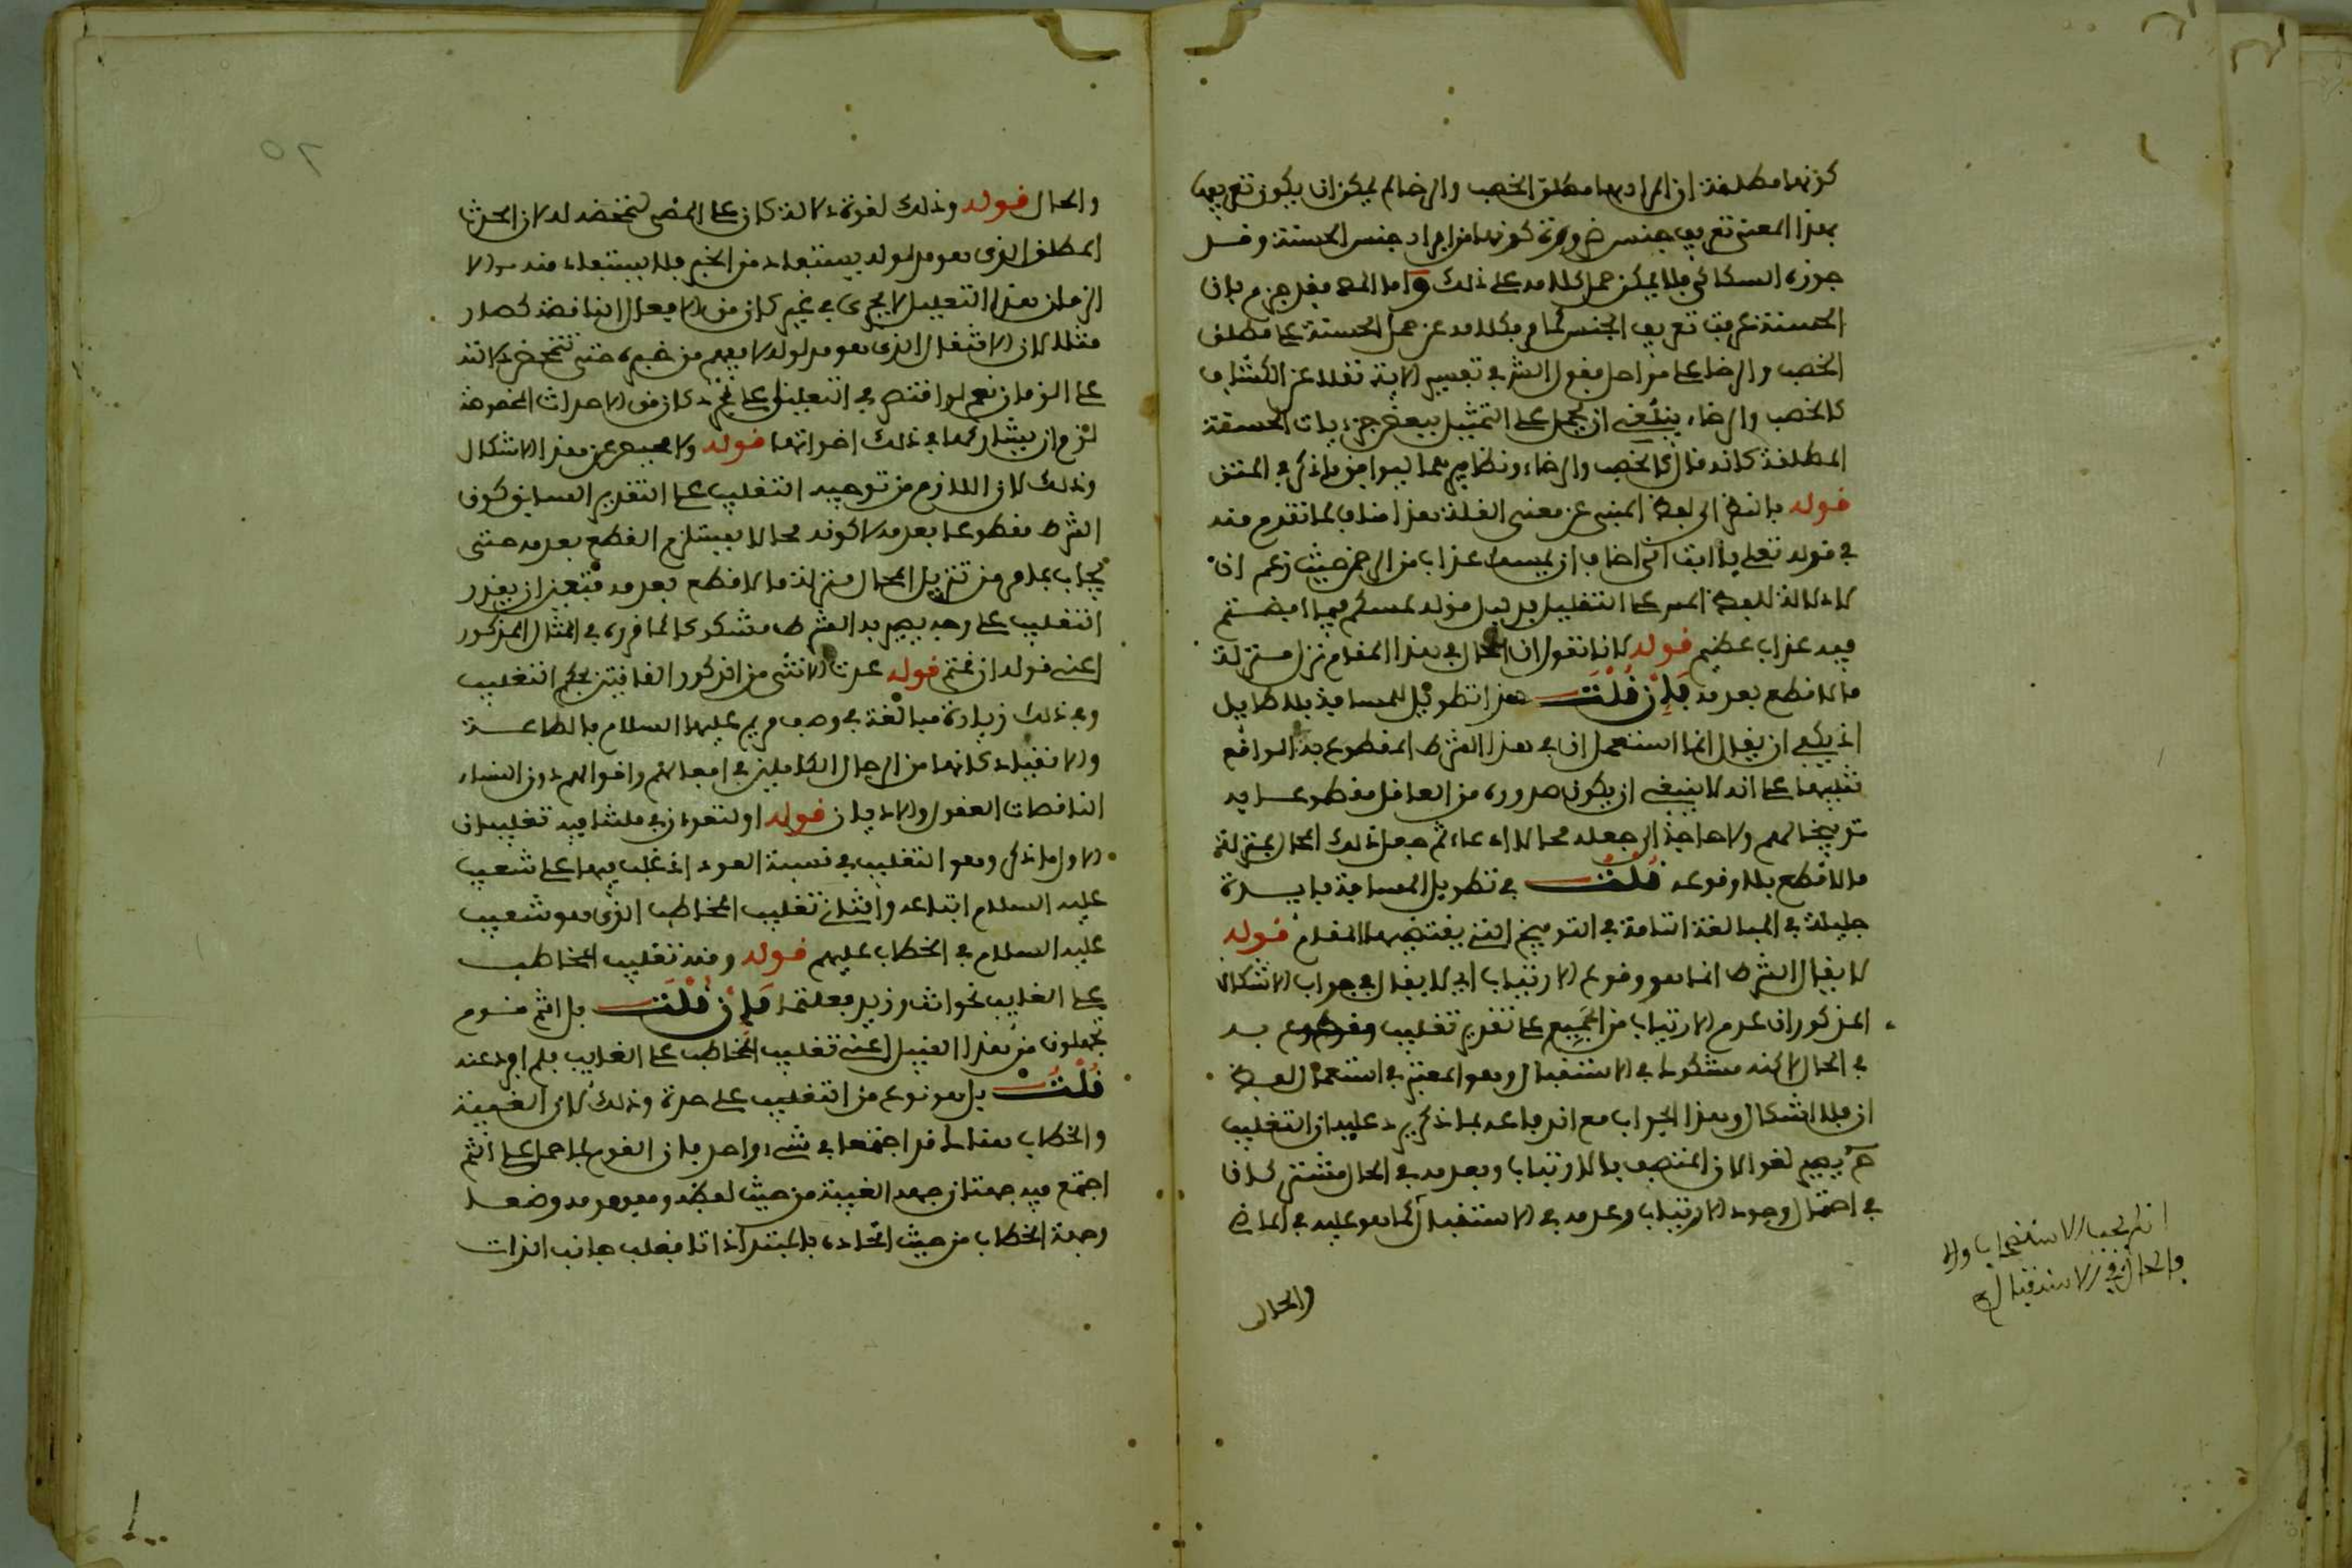 كونها مطلقة اذ المراد بها مطلق الخصب والرخا لم يمكن ان يكون تعريفها
بهذا المعنى تعريف جنس ضرورة كونها من افراد جنس الحسنة وقد
جوزه السكاكي فلا يمكن حمل كلامه على ذلك واما المص فقد جزم بان
الحسنة عرفت تعريف الجنس كما مر فكلامه عن حمل الحسنة على مطلق
الخصب والرخا على مراحل فقول الش في تفسير الاية نقلا عن الكشاف
كالخصب والرخاء ينبغي ان يحمل على التمثيل ببعض جزءيات الحسنة
المطلقة كانه قال كالخصب والرخاء ونظايرهما ليوافق ما ذكر في المتن
قوله بالنظر الى لفظ المبنى عن معنى القلة هذا مناف لما تقدم منه
في قوله تعلى يا ابت اني اخاف ان يمسك عذاب من الرحمن حيث زعم ان
لا دلالة للفظ المس على التقليل بدليل قوله لمسكم فيما افضتم
فيه عذاب عظيم قوله لانا نقول ان المحال في هذا المقام نزل منزلة
ما لا قطع بعدمه فان قلت هذا تطويل للمسافة بلا طايل
اذ يكفي ان يقال انما استعمل ان في هذا الشرط المقطوع به الواقع
تنبيها على انه لا ينبغي ان يكون صدوره من العاقل مقطوعا به
توبيخا لهم ولا حاجة الى جعله محالا ادعاء ثم جعل ذلك المحال بمنزلة
ما لا قطع بلا وقوعه قلت في تطويل المسافة فايدة
جليلة في المبالغة التامة في التوبيخ التي يقتضيها المقام قوله
لا يقال الشرط انما هو وقوع الارتياب اي لا يقال في جواب الاشكال
المذكور ان عدم الارتياب من الجميع على تقدير تغليب مقطوع به
في الحال لاكنه مشكوك في الاستقبال وهو المعتبر في استعمال لفظ
ان فلا اشكال وهذا الجواب مع اندفاعه بما ذكر يرد عليه ان التغليب
ح يصير لغوا لان المتصف بالارتياب وبعدمه في الحال مشتركان
في احتمال وجود الارتياب وعدمه في الاستقبال كما هو عليه في الماضي
والحال
والحال قوله وذلك لقوة دلالة كان على المضي لتمحضه له لان الحدث
المطلق الذي هو مدلوله يستفاد من الخبر فلا يستفاد منه سوا الا
الزمان هذا التعليل لا يجري في غير كان من الافعال الناقصة كصار
مثلا لان الانتقال الذي هو مدلوله لا يفهم من خبره حتى تتمحض دلالته
على الزمان نعم لو اقتصر في التعليل على تجرد كان من الاحداث المخصوصة
لزم ان يشاركها في ذلك اخواتها قوله ولا محيص عن هذا الاشكال
وذلك لان اللازم من توجيه التغليب على التقدير السابق كون
الشرط مقطوعا بعدمه لا كونه محالا يستلزم القطع بعدمه حتى
يجاب بما مر من تنزيل المحال منزلة ما لا قطع بعدمه فتعين ان يقرر
التغليب على وجه يصير به الشرط مشكوكا كما قرره في المثال المذكور
اعني قوله ان قمتم قوله عدت الانثى من الذكور القانتين بحكم التغليب
وفي ذلك زيادة مبالغة في وصف مريم عليها السلام بالطاعة
والانقياد كانها من الرجال الكاملين في افعالهم واقوالهم دون النساء
الناقصات العقول والاديان قوله او لتعودن في ملتنا فيه تغليبان
الاول ما ذكر وهو التغليب في نسبة العود اذ غلب فيها على شعيب
عليه السلام اتباعه والثاني تغليب المخاطب الذي هو شعيب
عليه السلام في الخطاب عليهم قوله ومنه تغليب المخاطب
على الغايب نحو انت وزيد فعلتما فان قلت بل انتم قوم
تجهلون من هذا القبيل اعني تغليب المخاطب على الغايب فلم افرد عنه
قلت بل هو نوع من التغليب على حدة وذلك لان الغيبة
والخطاب هناك قد اجتمعا في شيء واحد فان القوم لما حمل على انتم
اجتمع فيه جهتان جهة الغيبة من حيث لفظه ومفهومه وضعا
وجهة الخطاب من حيث اتحاده بالمبتدا ذاتا فغلب جانب الذات